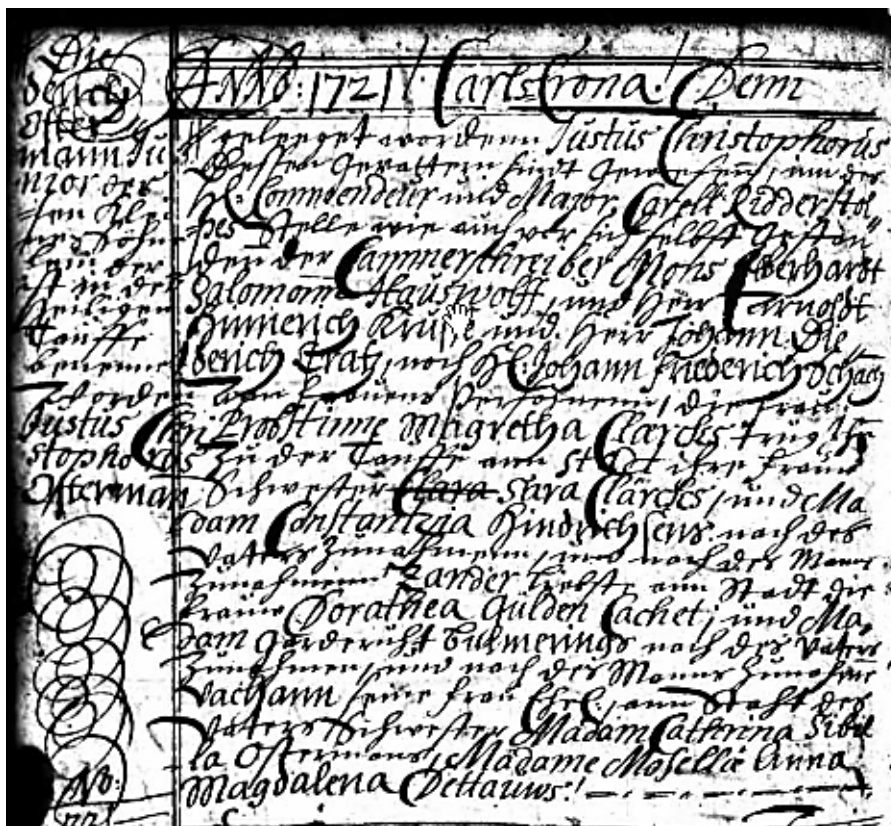 Die
derich
Oster
mann Ju
nior des
=sen Klei
nes Söhn
lein der
ist in der
Heiligen
Tauffe
benenne
Worden
Justus Chri
stophorus
Osterman
No:
ANNO: 1721! Carlscrona! Denn
geleeget wordenn Justus Christophorus
Dessen Gevattern sindt Gewesenn, inn des
H: Commendeur und Major Carell Ridderstol
pes Stelle wie auch vor sich selbst Gestan
den der Cammerschreiber Mons Eberhardt
Salomonn Hauswolff, und Herr Earnoldt
Hinnerich Kruse und Herr Johann Die
derich Cratz, noch H: Johann Friederich Schach
von Frauens Persohnenn, die Frau
Probstinne Magretha Clarcks trug ihn
zu der Tauffe ann Stadt ihre Frau
Schwester Sara Clarcks, und Ma
dam Constantzia Hindrichsens nach des
Vaters Zunahmenn, und nach des Manns
Zunahmenn Zander Liebste ann Stadt die
Fraw Dorathea Gülden Cachet, und Ma
dam Garderüht Bulmerings nach des Vaters
Zunahmen, und nach des Manns Zunahme
Vachann seine Frau Ehel: ann Stadt des
Vaters Schwester Madam Cathrina Sibil
la Ostermans, Madame Mosellie Anna
Magdalena Dettauws!